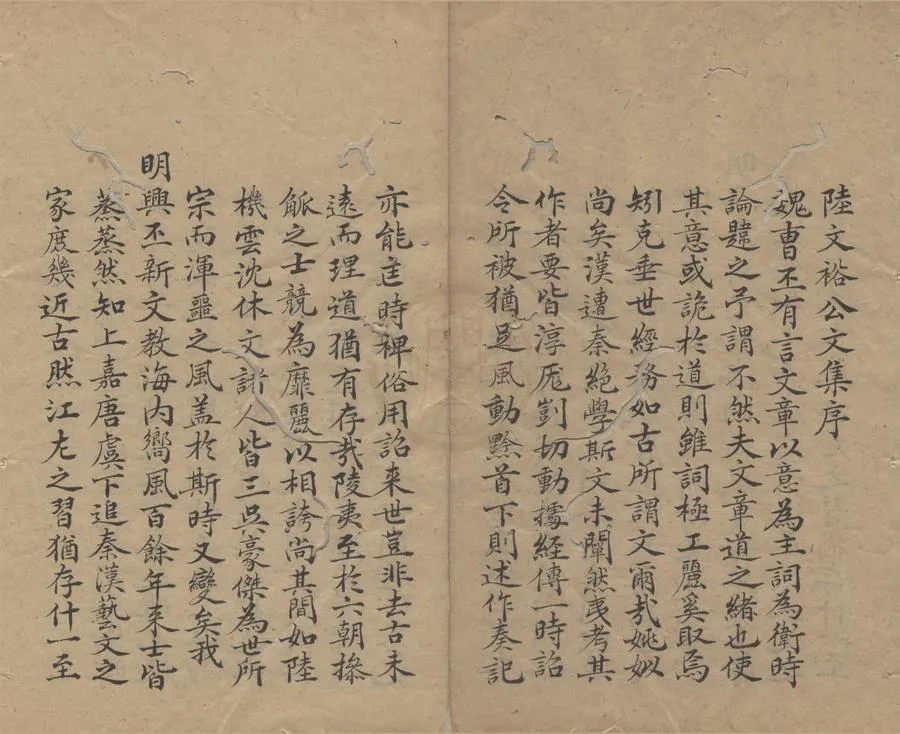 陸文裕公文集序
魏曹丕有言文章以意為主詞為衛時
論韙之予謂不然夫文章道之緒也使
其意或詭於道則雖詞極工麗奚取焉
矧克垂世經務如古所謂文爾哉姚姒
尚矣漢遭秦絕學斯文未闡然夷考其
作者要皆淳厖剴切動據經傳一時詔
令所被猶足風動黔首下則述作奏記
亦能匡時稗俗用詔来世豈非去古未
遠而理道猶有存哉陵夷至於六朝摻
觚之士競為靡麗以相誇尚其間如陸
機雲沈休文諸人皆三吳豪傑為世所
宗而渾噩之風盖於斯時又變矣我
明興丕新文教海内嚮風百餘年来士皆
蒸蒸然知上嘉唐虞下追秦漢藝文之
家庶幾近古然江左之習猶存什一至